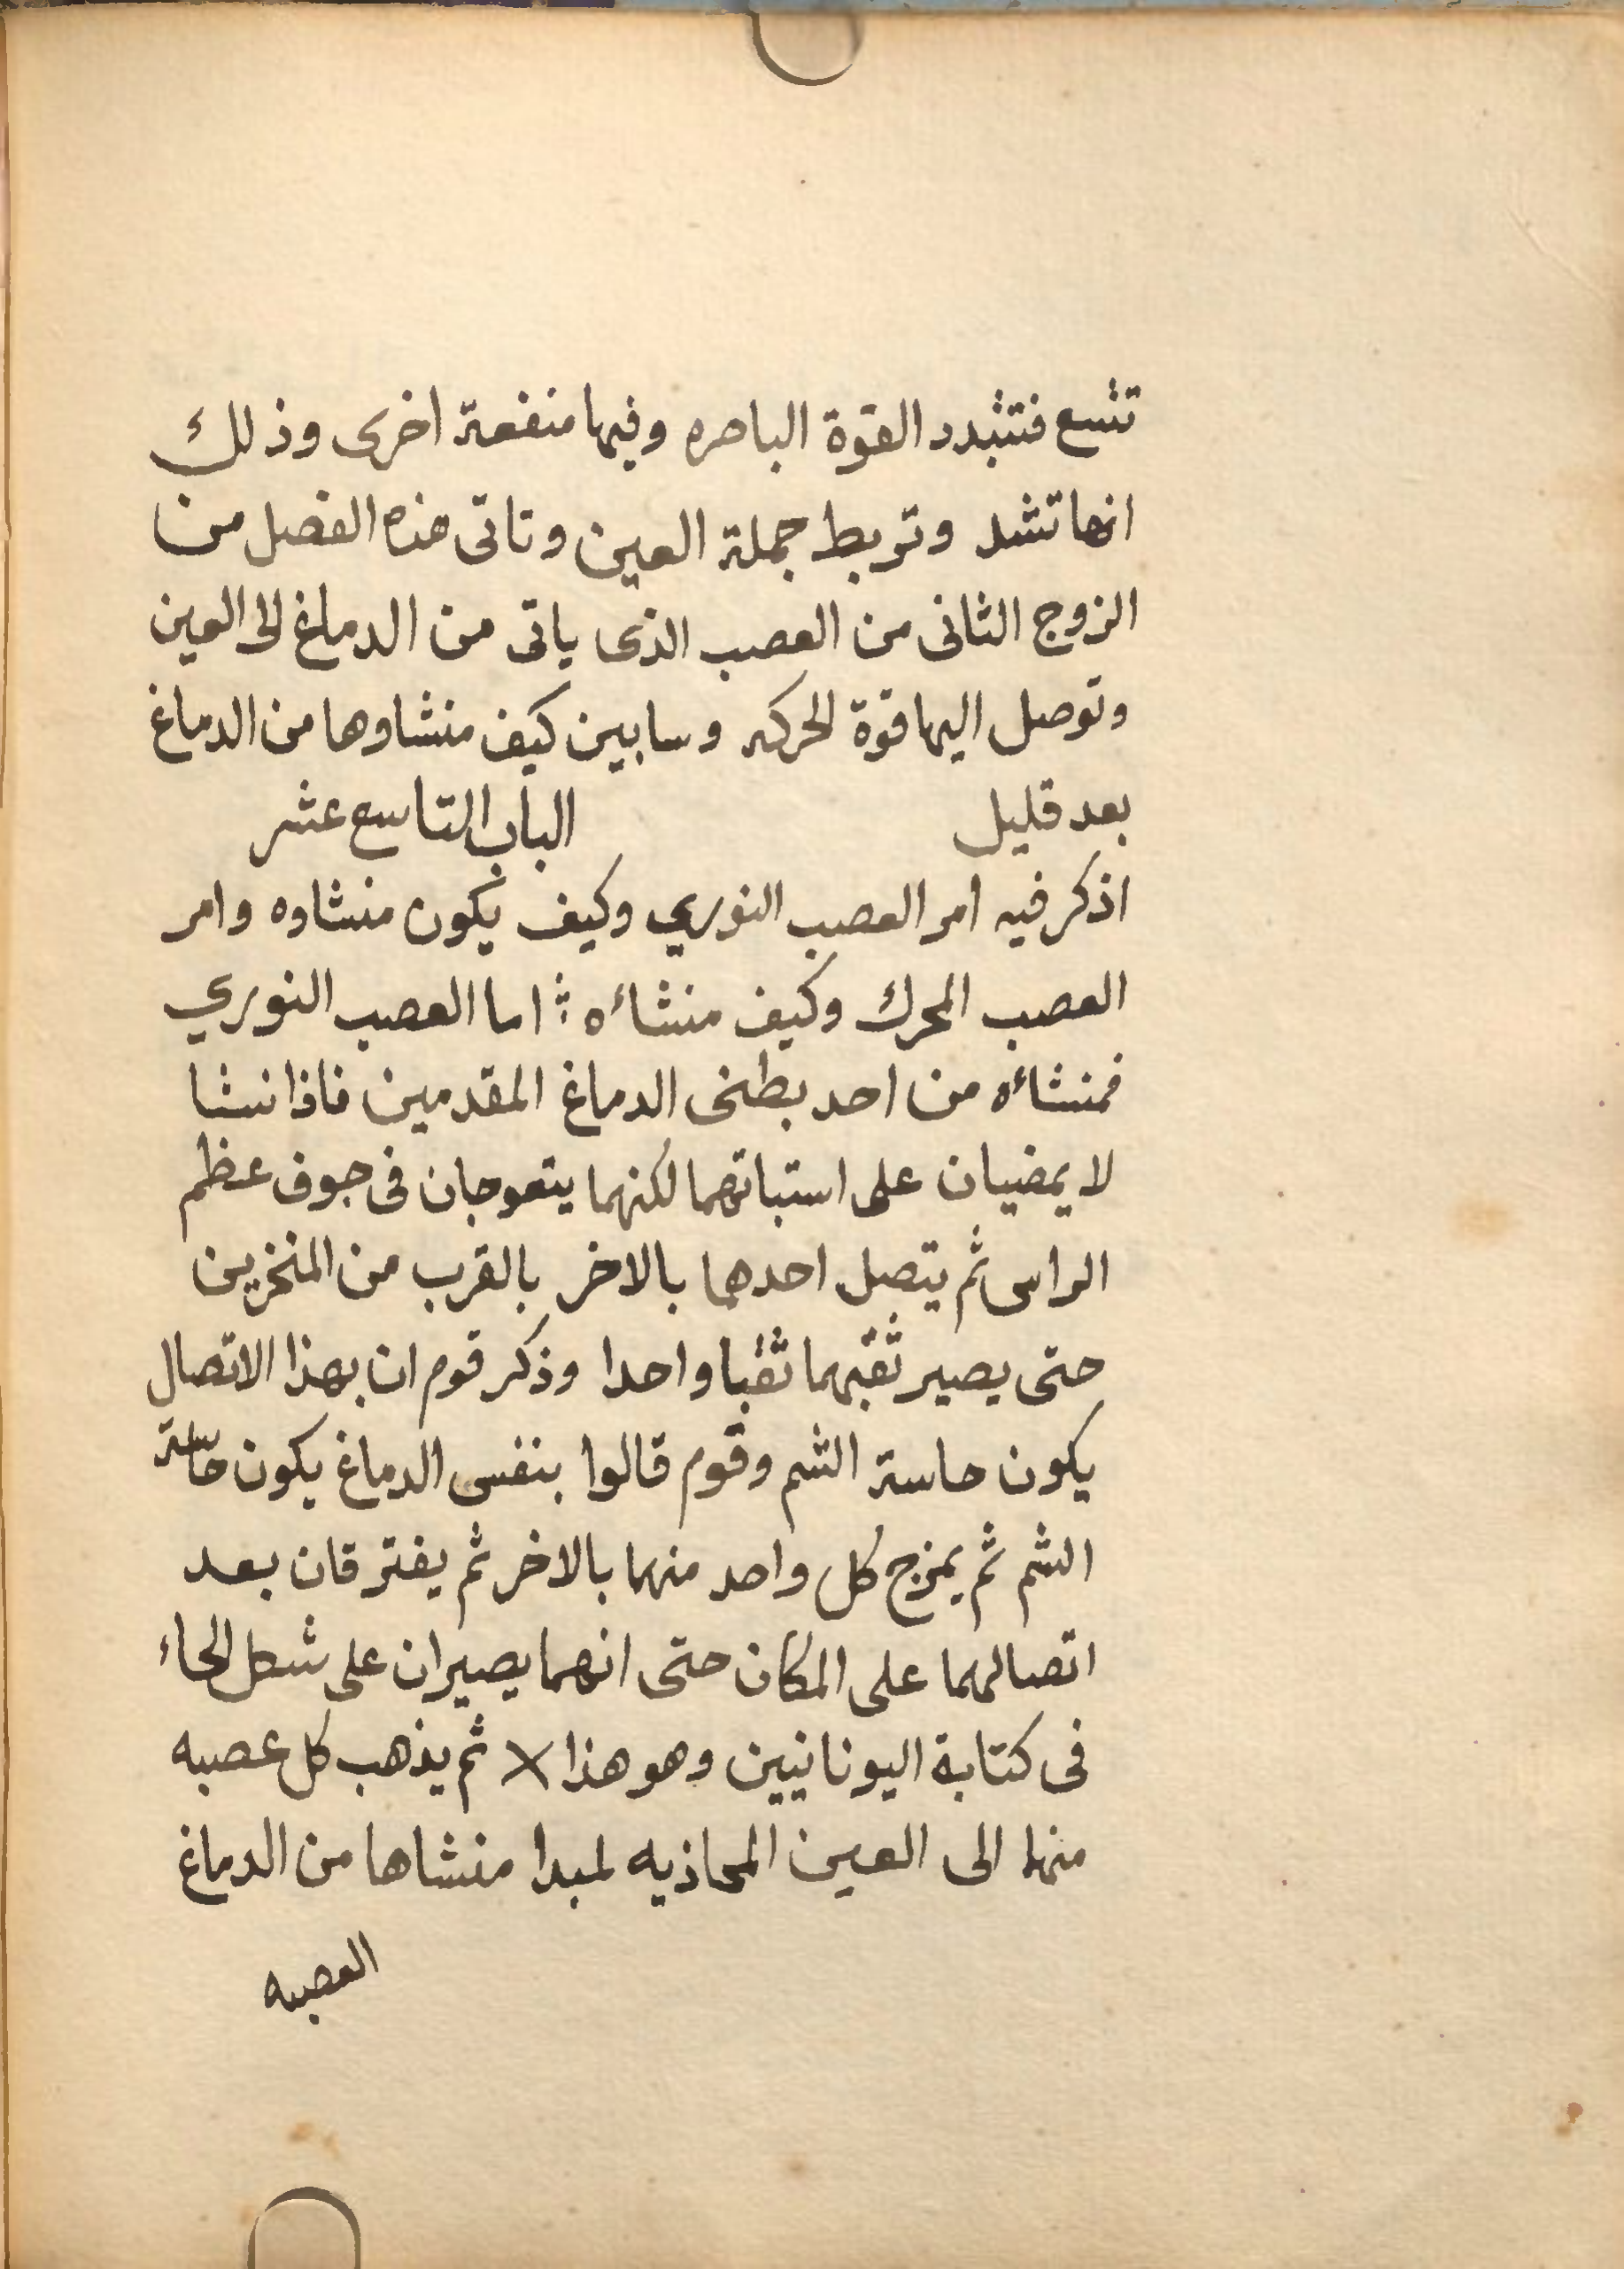 تتسع فتتبدد القوة الباصره وفيها منفعة اخرى وذلك
انها تشد وتربط جملة العين وتاتى هذه الفصل من
الزوج الثانى من العصب الذى ياتى من الدماغ الى العين
وتوصل اليها قوة الحركه وسابين كيف منشاوها من الدماغ
بعد قليل الباب التاسع عشر
اذكر فيه امر العصب النوري وكيف يكون منشاوه وامر
العصب المحرك وكيف منشاءه اما العصب النوري
فمنشاءه من احد بطنى الدماغ المقدمين فاذا نشا
لا يمضيان على استباتهما لكنهما يتعوجان فى جوف عظم
الراس ثم يتصل احدهما بالاخر بالقرب من المنخرين
حتى يصير ثقبهما ثقبا واحدا وذكر قوم ان بهذا الاتصال
يكون حاسة الشم وقوم قالوا بنفس الدماغ يكون حاسة
الشم ثم يمزج كل واحد منهما بالاخر ثم يفترقان بعد
اتصالهما على المكان حتى انهما يصيران على شكل الحاء
فى كتابة اليونانيين وهو هذا X ثم يذهب كل عصبه
منها الى العين المحاذيه لمبدا منشاها من الدماغ
العصبه